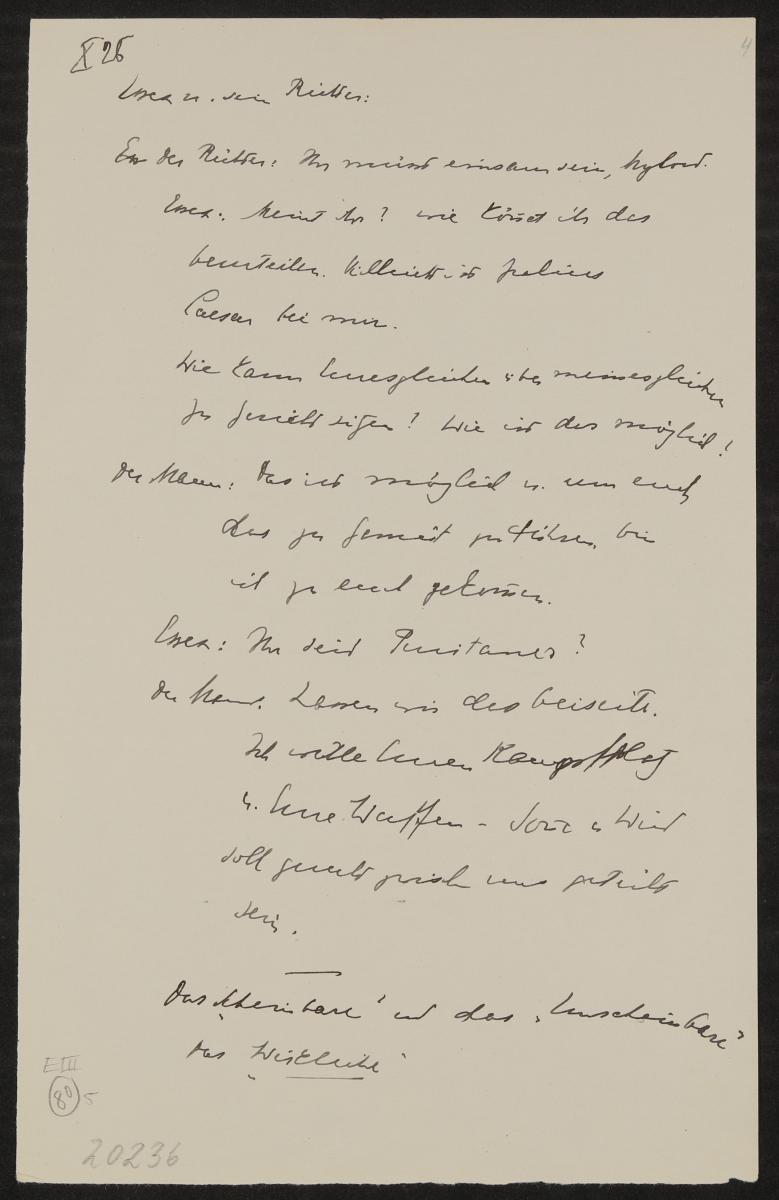 X 26
4
Essex u. sein Richter:
Der Richter: Ihr müsst einsam sein, Mylord.
Essex: Meint Ihr? wie könnt ihr das
beurteilen. Vielleicht ist Julius
Caesar bei mir.
Wie kann Euresgleichen über meinesgleichen
zu Gericht sitzen? Wie ist das möglich!
Der Mann: Das ist möglich u. um euch
das zu Gemüt zu führen, bin
ich zu euch gekommen.
Essex: Ihr seid Puritaner?
Der Mann. Lassen wir das beiseite.
Ich wähle Euren Kampfplatz
u. Eure Waffen – Sonne u Wind
soll gerecht zwischen uns geteilt
sein.
Das „Scheinbare" und das „Unscheinbare"
das „Wirkliche"
E III
80 5
20236